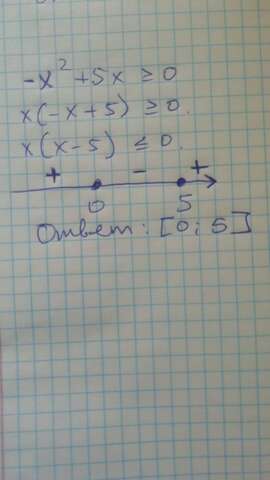 -x² + 5x ≥ 0
x(-x + 5) ≥ 0.
x(x - 5) ≤ 0.
+ - +
0 5
Ответ: [0; 5]